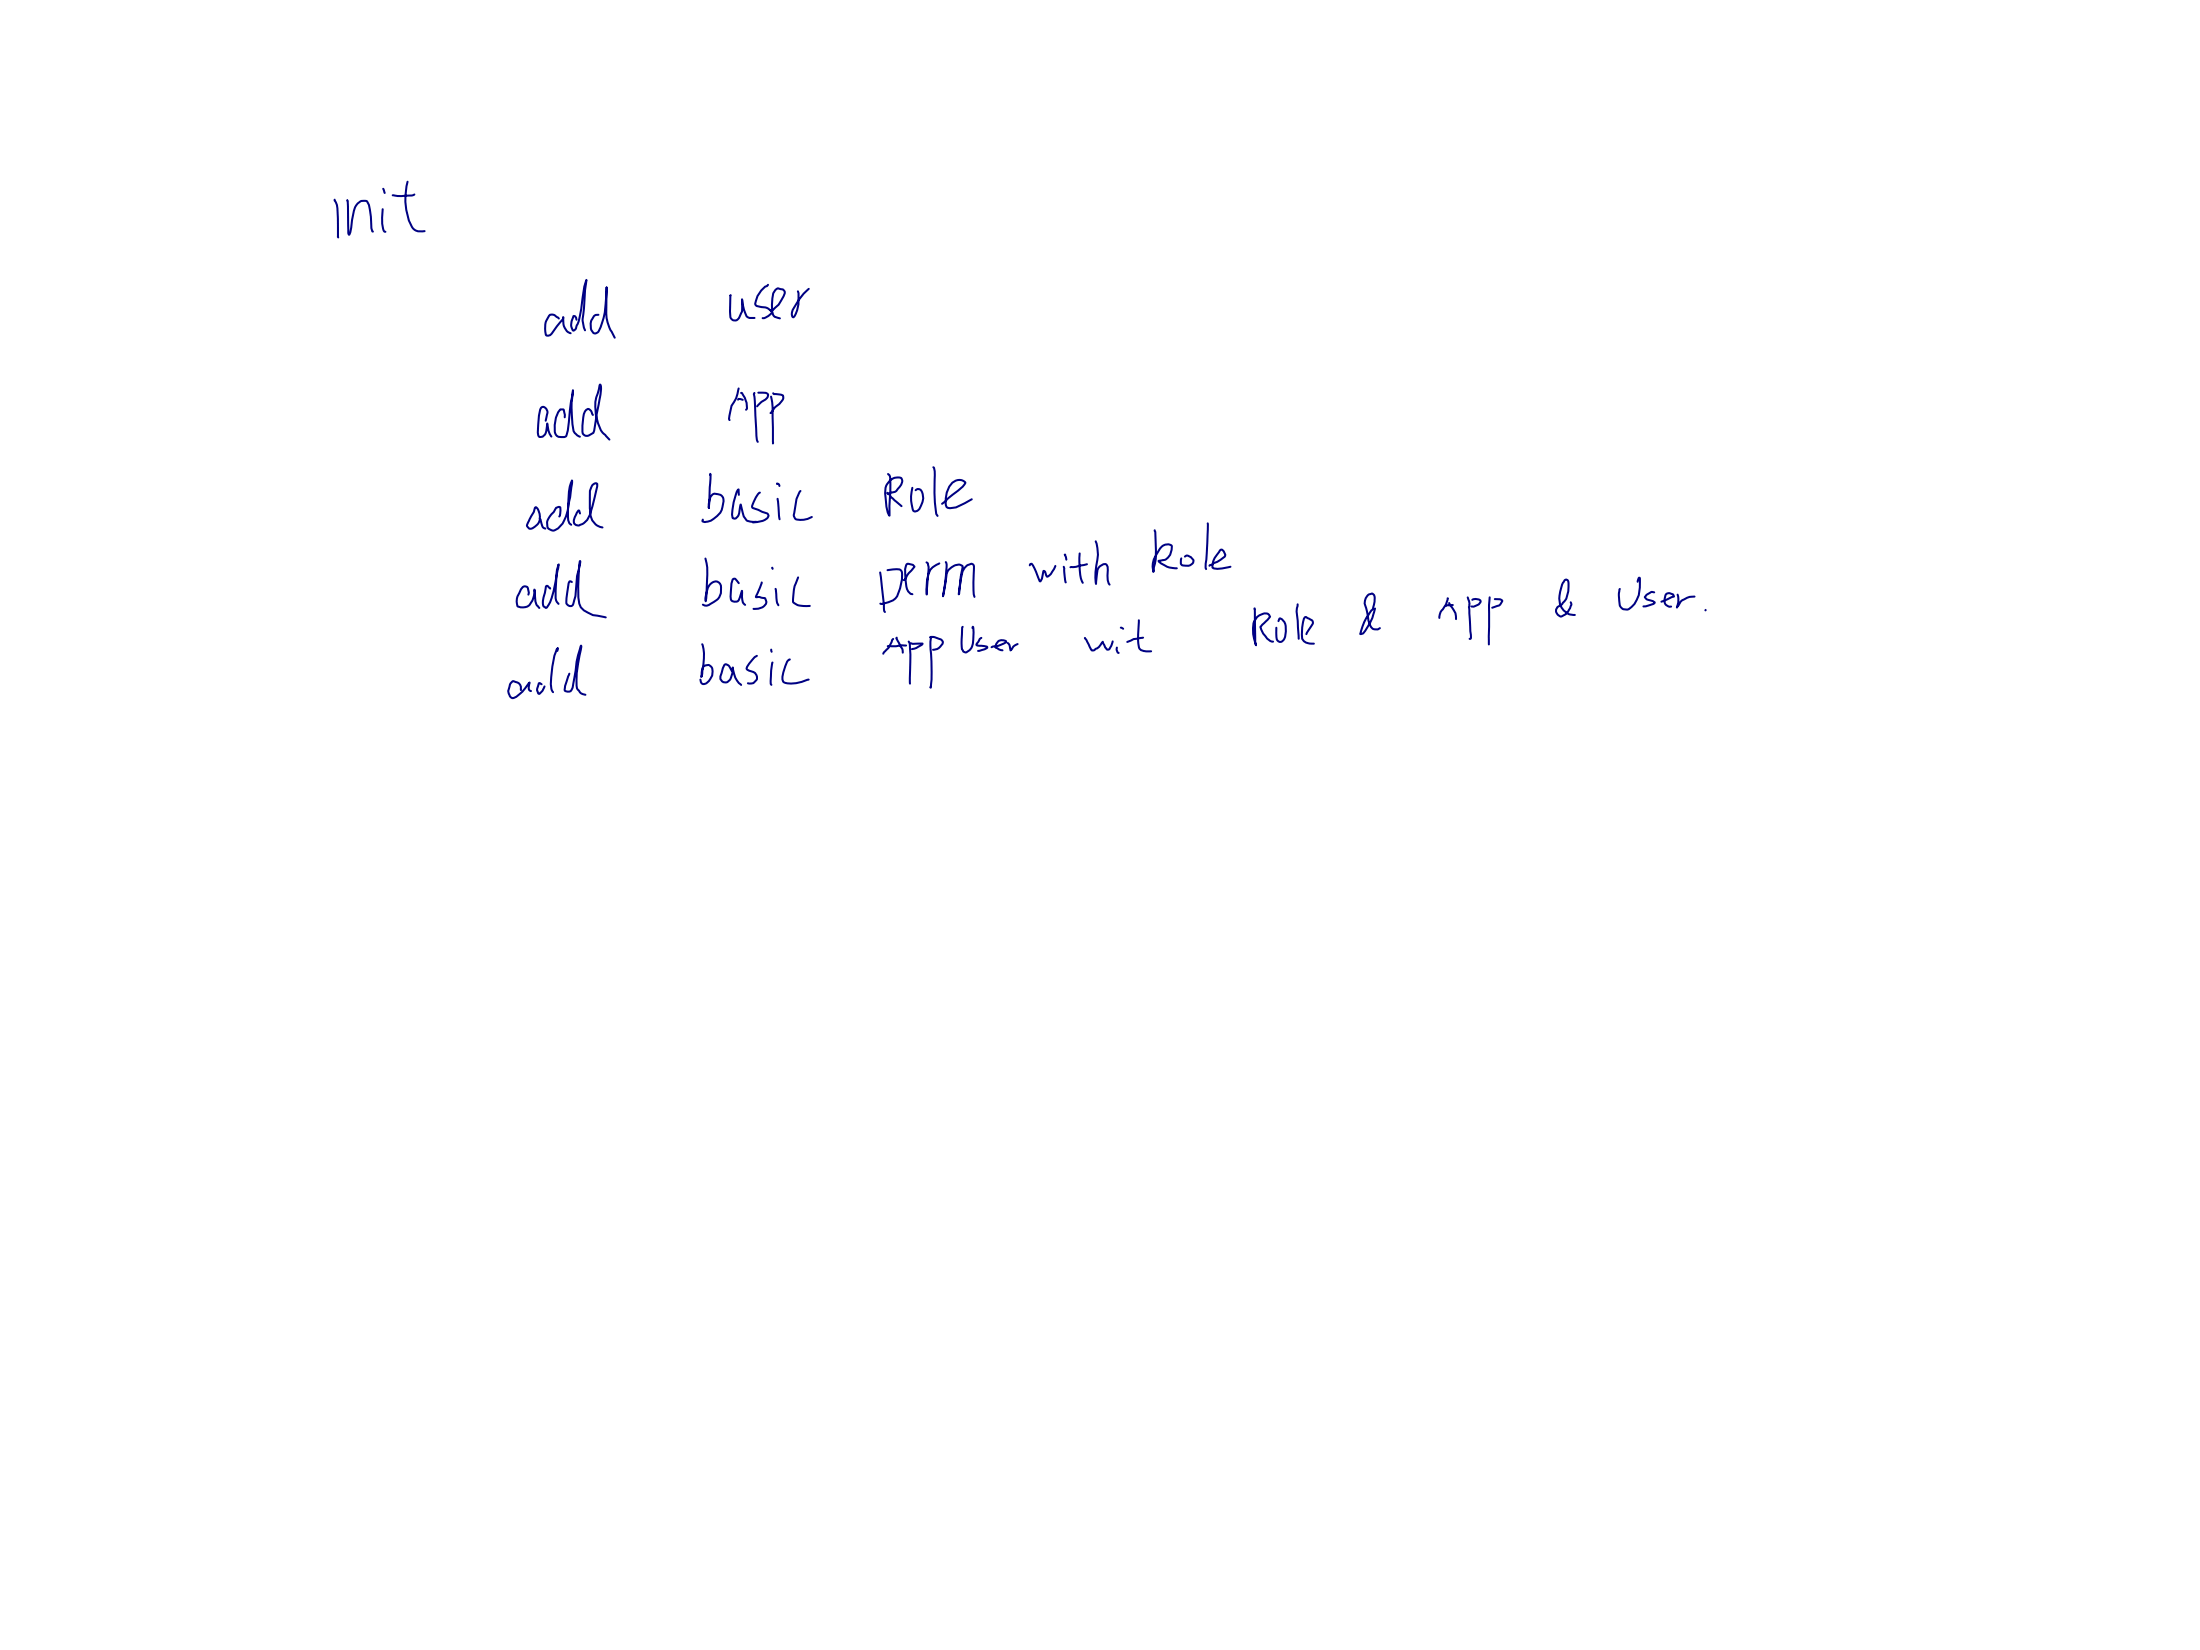 init
add user
add App
add basic Role
add basic perm with Role
add basic AppUser wit Role & App & User.